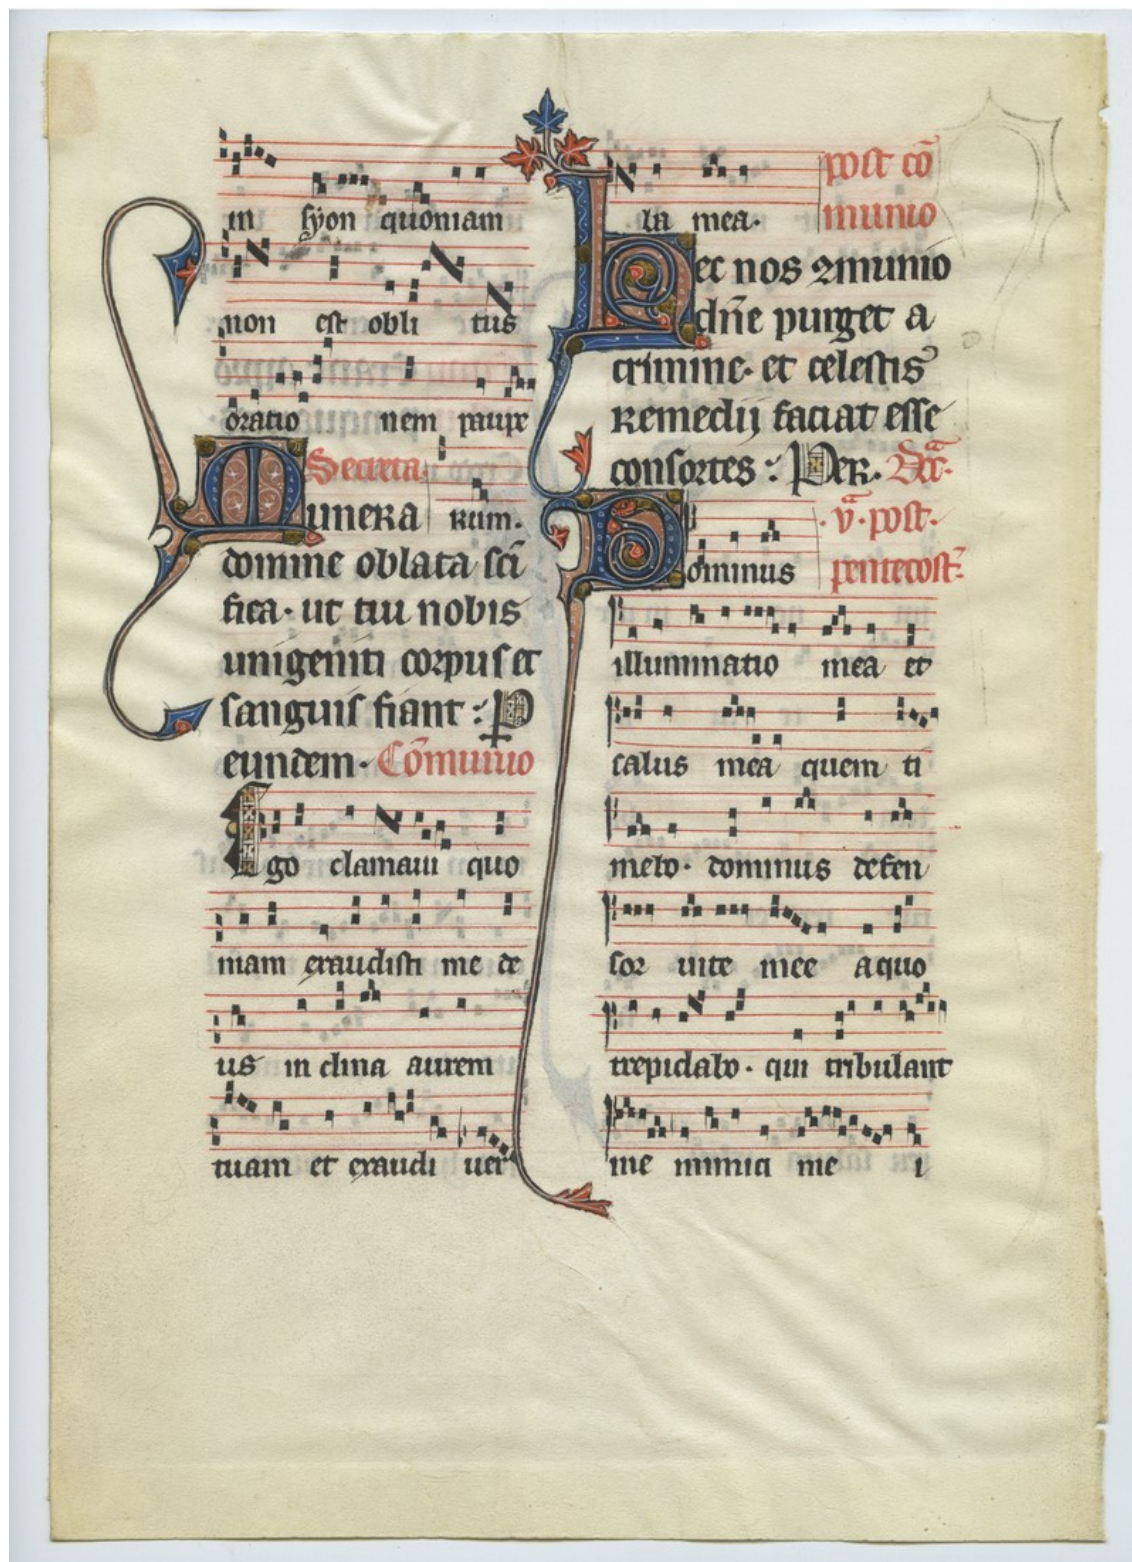 in syon quoniam
non est obli tus
oratio nem paupe
Secreta.
Munera rum.
domine oblata scī
fica. ut tui nobis
unigeniti corpus et
sanguis fiant: P
eundem. Cōmunio
Ego clamaui quo
niam exaudisti me de
us in clina aurem
tuam et exaudi uer
la mea. post cō
munio
Hec nos 2munio
dn̄e purget a
crimine. et celestis
Remedij faciat esse
consortes: Per. Dc̄a.
v̄a. post.
Dominus pentecost.
illuminatio mea et
salus mea quem ti
mebo. dominus defen
sor uite mee aquo
trepidabo. qui tribulant
me inimici me i